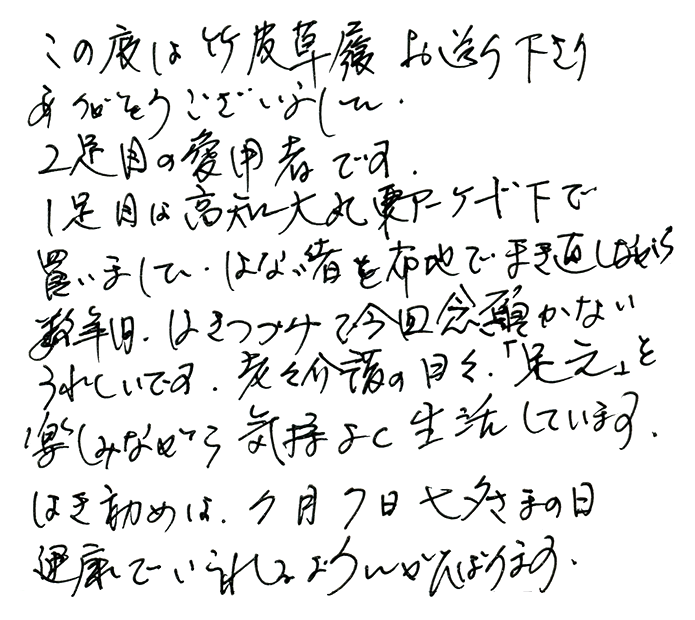 この度は竹皮草履お送り下さり
ありがとうございました.
2足目の愛用者です.
1足目は高知大丸東アーケード下で
買いました.はなお者を布地でまき直しながら
数年間.はきつづけて今回念願かない
うれしいです.老々介護の日々.「足元」を
楽しみながら気持よく生活しています.
はき初めは.7月7日七夕さまの日
健康でいられるようがんばります.